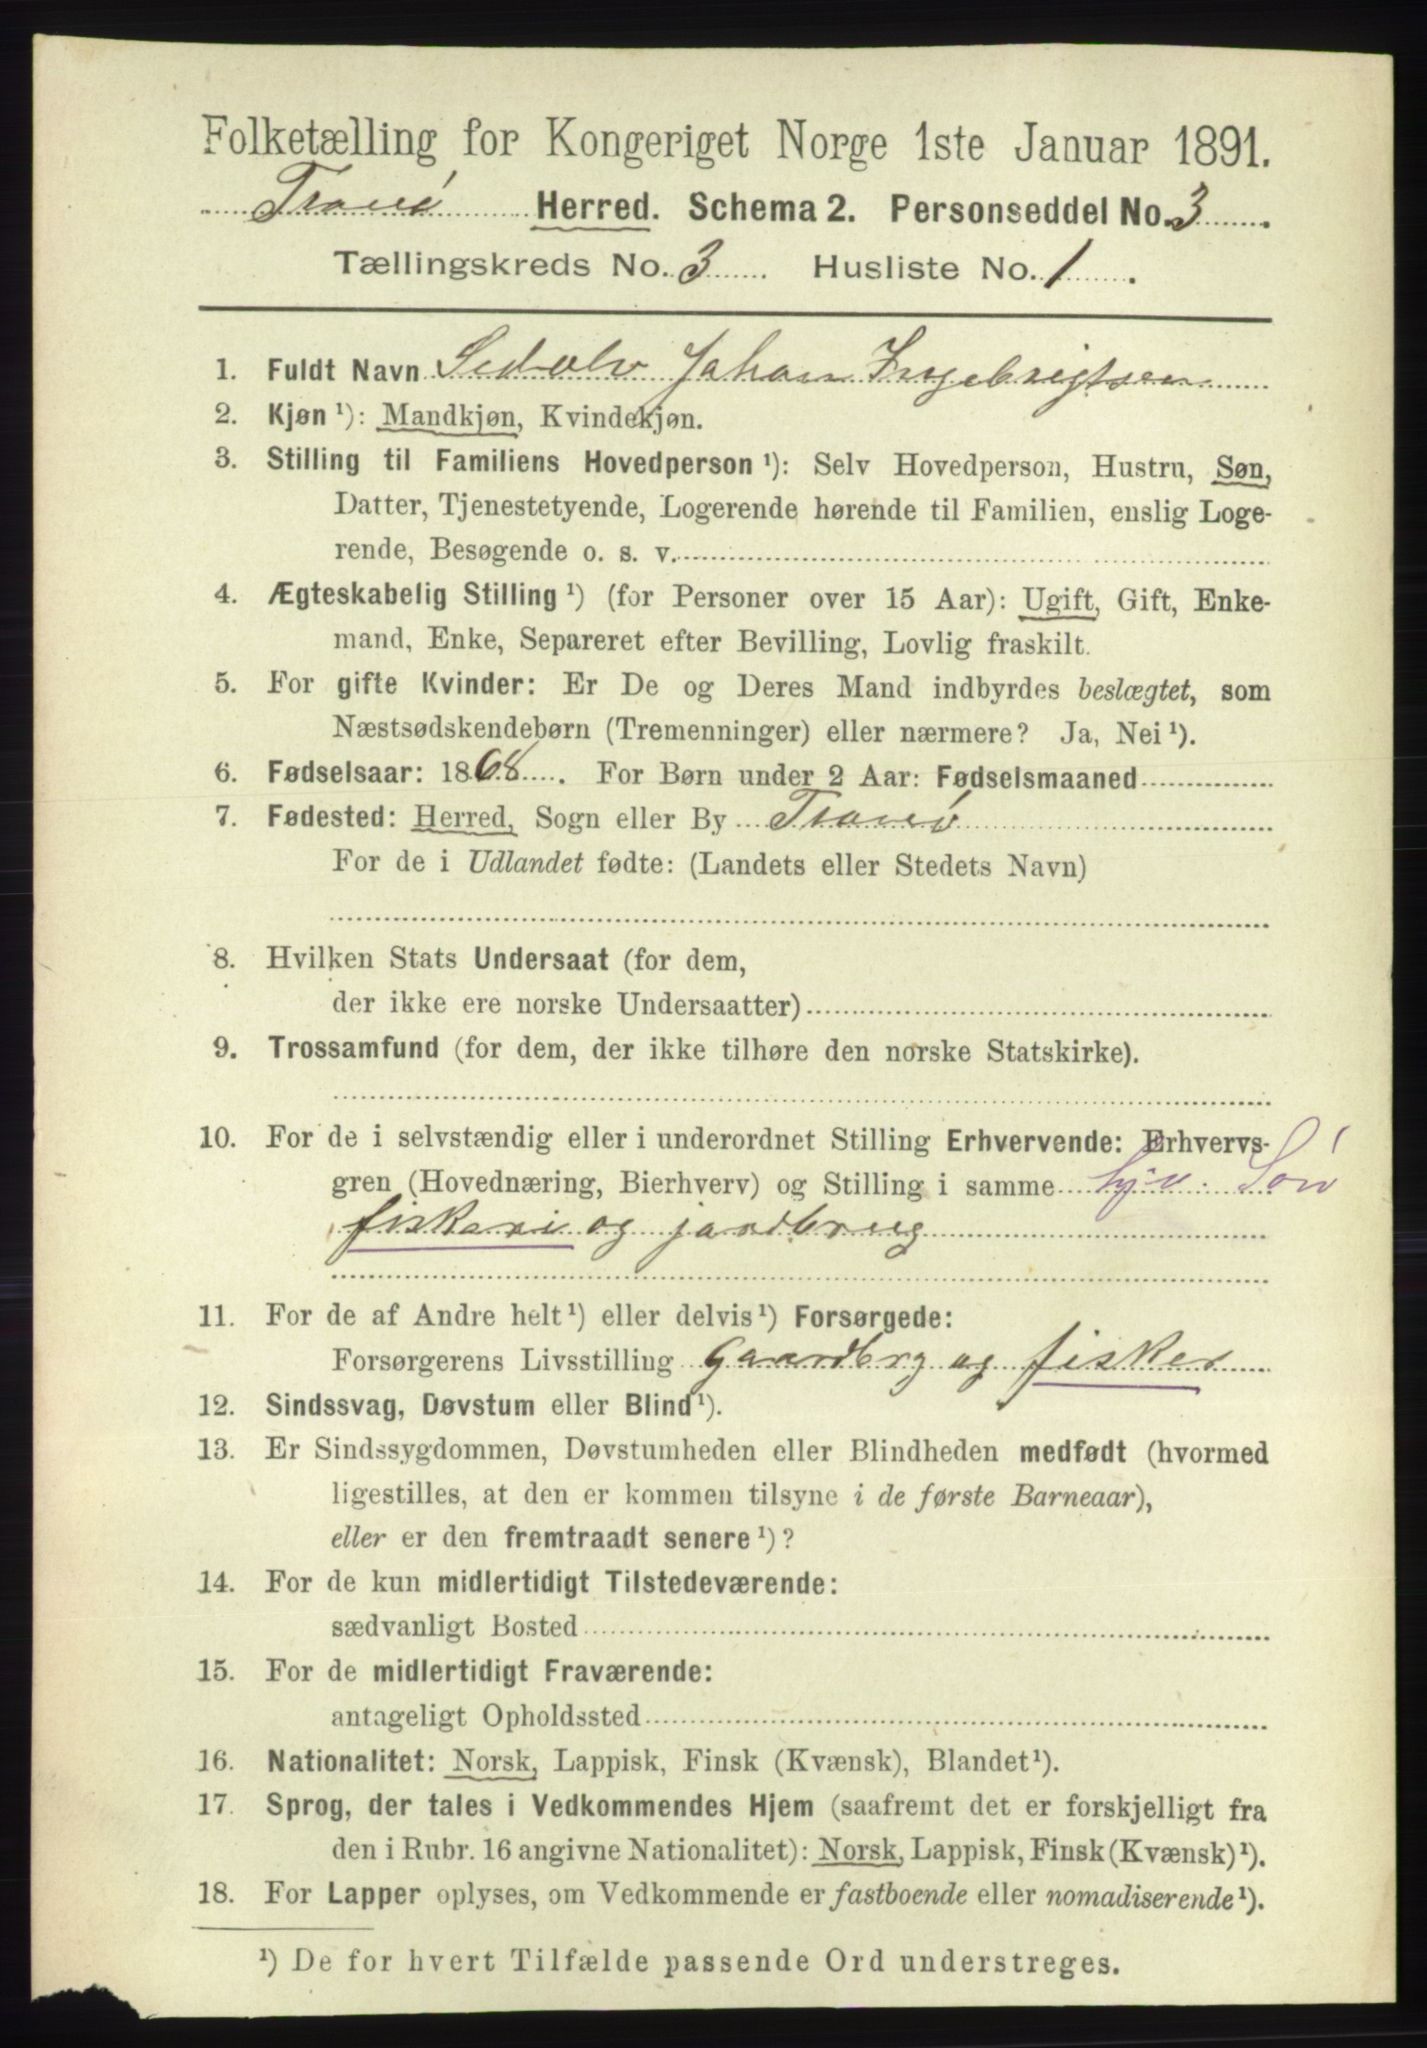 Folketælling for Kongeriget Norge 1ste Januar 1891.
Tranø Herred. Schema 2. Personseddel No. 3
Tællingskreds No. 3 Husliste No. 1.
1. Fuldt Navn Sedolv Johan Ingebrigtsen
2. Kjøn ¹): Mandkjøn, Kvindekjøn.
3. Stilling til Familiens Hovedperson ¹): Selv Hovedperson, Hustru, Søn,
Datter, Tjenestetyende, Logerende hørende til Familien, enslig Loge-
rende, Besøgende o. s. v.
4. Ægteskabelig Stilling ¹) (for Personer over 15 Aar): Ugift, Gift, Enke-
mand, Enke, Separeret efter Bevilling, Lovlig fraskilt.
5. For gifte Kvinder: Er De og Deres Mand indbyrdes beslægtet, som
Næstsødskendebørn (Tremenninger) eller nærmere? Ja, Nei ¹).
6. Fødselsaar: 1868. For Børn under 2 Aar: Fødselsmaaned
7. Fødested: Herred, Sogn eller By Tranø
For de i Udlandet fødte: (Landets eller Stedets Navn)
8. Hvilken Stats Undersaat (for dem,
der ikke ere norske Undersaatter)
9. Trossamfund (for dem, der ikke tilhøre den norske Statskirke).
10. For de i selvstændig eller i underordnet Stilling Erhvervende: Erhvervs-
gren (Hovednæring, Bierhverv) og Stilling i samme Søn
fiskeri og jordbrug
11. For de af Andre helt ¹) eller delvis ¹) Forsørgede:
Forsørgerens Livsstilling Gaardbrg og fisker
12. Sindssvag, Døvstum eller Blind ¹).
13. Er Sindssygdommen, Døvstumheden eller Blindheden medfødt (hvormed
ligestilles, at den er kommen tilsyne i de første Barneaar),
eller er den fremtraadt senere ¹)?
14. For de kun midlertidigt Tilstedeværende:
sædvanligt Bosted
15. For de midlertidigt Fraværende:
antageligt Opholdssted
16. Nationalitet: Norsk, Lappisk, Finsk (Kvænsk), Blandet ¹).
17. Sprog, der tales i Vedkommendes Hjem (saafremt det er forskjelligt fra
den i Rubr. 16 angivne Nationalitet): Norsk, Lappisk, Finsk (Kvænsk) ¹).
18. For Lapper oplyses, om Vedkommende er fastboende eller nomadiserende ¹).
¹) De for hvert Tilfælde passende Ord understreges.